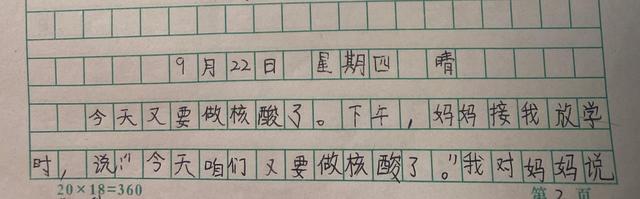 9月22日 星期四 晴
今天又要做核酸了。下午，妈妈接我放学
时，说:“今天咱们又要做核酸了。”我对妈妈说
20×18=360 第2页